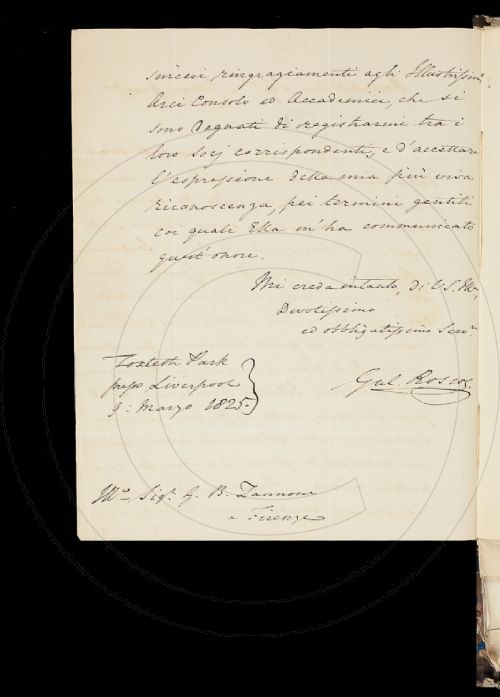 sinceri ringraziamenti agli Illustrissimi
Arci Consolo ed Accademici, che si
sono Degnati di registrarmi tra i
loro Socj corrispondenti, e d'accettare
l'espressione della mia più viva
riconoscenza, pei termini gentili
coi quali Ella m'ha communicato
quest' onore.
Mi creda intanto, di V.S. Illa.
Divotissimo
ed obbligatissimo Servr.
Toxteth Park
presso Liverpool
9: Marzo 1825.
Gul. Roscoe
Illmo. Sigr. G. B. Zannoni
a Firenze